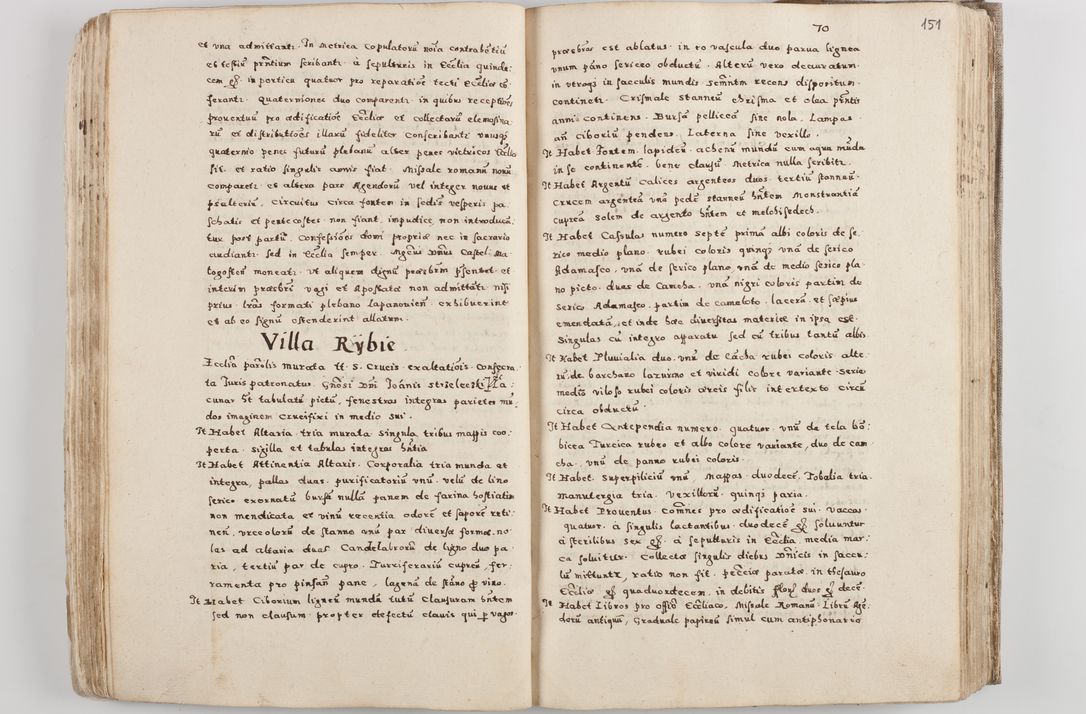 et una admittant. In Metrica Copulatorũ noĩa contrahẽtiũ
et testiũ pñtium scribanti. à sepulturis in Eccłia quinde:
cem gß. in porticu quatuor pro reparatiõe tecti Eccłiæ cõ
feranti. Quaterniones duo comparenti. in quibus receptiões
prouentuũ pro ædificatiõe Eccłiæ et collectarũ elemosina
rũ et distributiões illarũ fideliter Conscribanti. unusqz
quaternio penes futurũ plebanũ alter penes vitricos Eccłiæ
sit. et ratio singulis annis fiat. Missale romanũ nouũ
compareti. et altera pars Agendorũ vel integer nouus et
psalteriũ. Circuitus circa fontem in sedis vesperis pa
schatis et pentecostes non fiant, impudicæ non introducã:
tur post partũ. Confessiões domi propriæ nec in sacrario
audianti. sed in Eccłia semper.
moneati. ut aliquem dignũ præsbrm pſentet et
interim præsbri vagi et Apostatæ non admittãti nisi
prius lr̃as formati plebano Lapanouieñ. exhibuerint
et ab eo signũ ostenderint allatum.
Villa Rÿbie
Eccłia parołis murata tt. S. Crucis exaltatiõis. Consecra
ta Iuris patronatus. Gñosi Dñi Joãnis strzelecki
cunar hẽt tabulatũ pictũ, fenestras integras parietes mũ:
dos imaginem crucifixi in medio sui.
It Habet Altaria tria murata singula tribus mappis coo:
perta. sigilla et tabulas integras hñtia
It Habet Attinentia Altaris. Corporalia tria munda et
integra, pallas duas. purificatoriũ unũ. velũ de lino
serico exornatũ bursã nullã panem de farina hostiatim
non mendicata et vinũ recentia odorẽ et saporẽ reti:
nen̄, vrceolorũ de stanno unũ par diuersæ formæ. no
las ad altaria duas Candelabrorũ de ligno duo pa:
ria, tertiũ par de cupro. Turciferariũ cupreũ, fer:
ramenta pro pinsañ pane, lagenã de stãno p vino.
It Habet Ciborium ligneũ mundũ tutũ Clausuram hñtem
sed non clausum propter defectũ clauis qui p vagos
70
151
præsbros est ablatus. in eo vascula duo parua lignea
unum pãno sericeo obductũ. Alterũ vero decuratum.
in utroqz in sacculis mundis semñtm recens dispositum.
contineti. Crismale stanneũ chrisma et olea pñtis
anni continens. Bursã pelliceã sine nola. Lampas
añ ciboriũ pendens. Laterna sine vexillo.
It Habet Fontem lapideũ. aheñu mundũ cum aqua mũda
in se continente. bene clausũ. Metrica nulla scribitr.
It Habet Argentũ Calices argenteos duos. tertiũ stanneũ.
Crucem argenteã unã pedẽ stanneũ hñtem. Monstrantiã
cupreã solem de argento hñtem et melchisedech.
It Habet Cassulas numero septẽ primã albi coloris de se:
rico medio plano. rubei coloris quinqz unã de serico
Adamasco, unã de serico plano, unã de medio serico pla:
no picto. duas de Camcha. unã nigri coloris partim de
serico Adamasco, partim de cameloto. lacerã. et sæpius
emendatã, et inde hæc diuersitas materiæ in ipsa est.
singulas cũ integro apparatu sed cũ tribus tantũ albis.
It Habet Pluuialia duo. unũ de cãcha rubei coloris alte:
rũ de barchano et viridi colore variante. serico
medio viloso rubei coloris aureis filis intertexto circũ
circa obductũ.
It Habet Antependia numero quatuor. unũ de tela bõ:
bicea Turcica rubeo et albo colore variante, duo de cam
cha. unũ de panno rubei coloris.
It Habet. superpiliciũ unũ. Mappas duodecẽ, Tobalia tria.
manutergia tria. vexillorũ. quinqz paria.
It Habet Prouentus. comñes pro ædificatiõe sui. vaccas.
quatuor. à singulis lactantibus duodecẽ gß soluuntur
à sterilibus sex gß. à sepulturis in Eccłia, media mar:
ca soluitur. Collectæ singulis diebus Dñicis in saccu:
lũ mittuntr, ratio non fit. pecciæ paratæ. in thesauro
Eccłiæ gß quaduordecem. in debitis flor. duos gß decẽ.
It Habet Libros pro offõ Eccłiaco, Missale Romanũ. Librũ Agẽ:
dorũ antiquũ, Graduale papireũ simul cum antiphonario